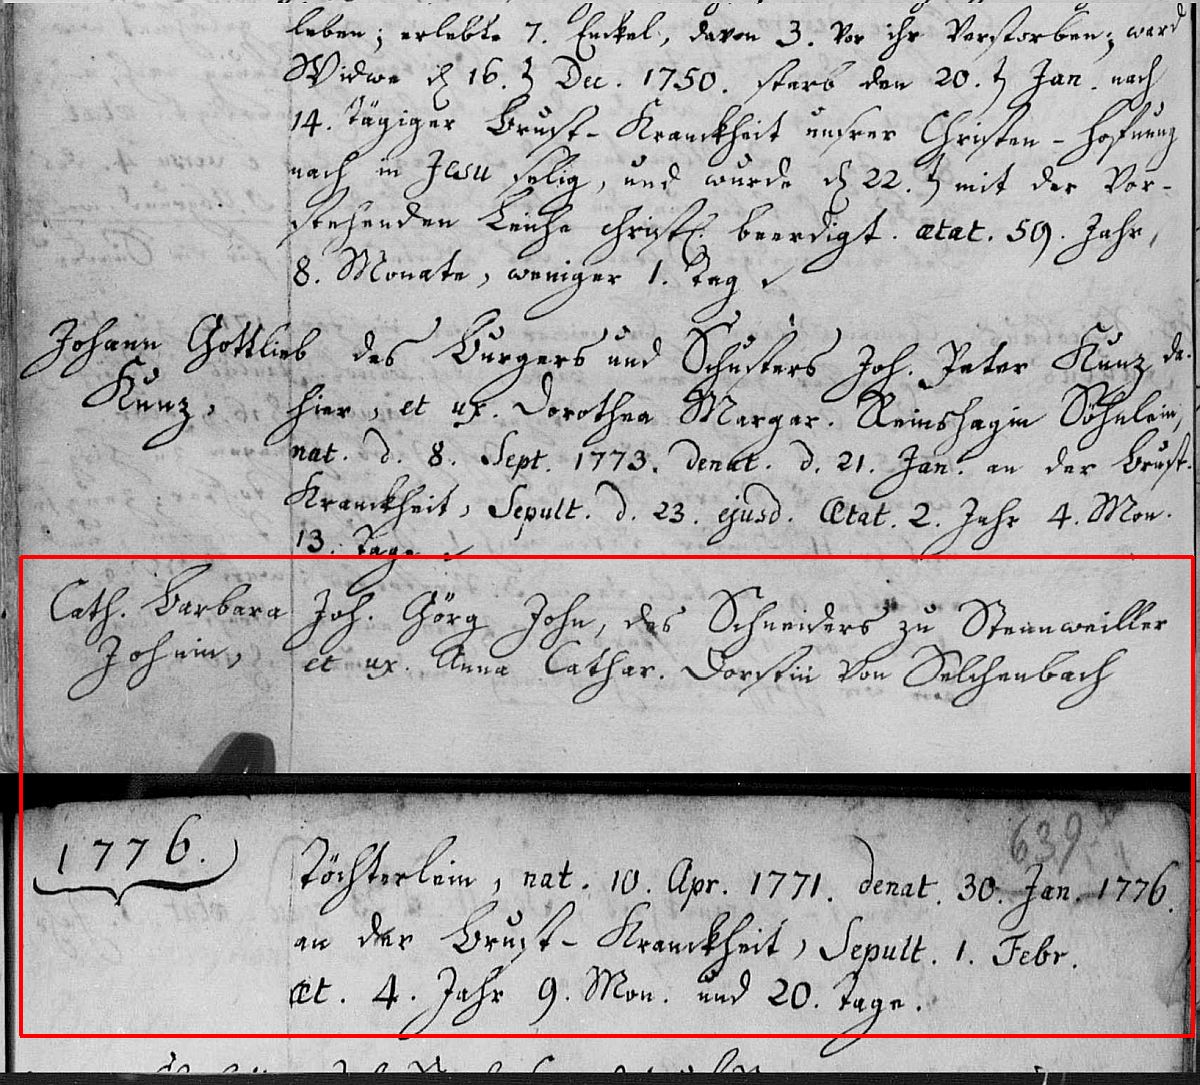 leben; erlebte 7. Enckel, davon 3. vor ihr verstorben; ward
Widwe d 16. t Dec. 1750. starb den 20. t Jan. nach
14. tägiger Brust-Kranckheit unsrer Christen-Hofnung
nach in Jesu selig, und wurde d 22. t mit der vor-
stehenden Leiche christl. beerdigt. ætat. 59. Jahr,
8. Monate, weniger 1. Tag
Johann Gottlieb des Burgers und Schusters Joh. Peter Kunz da-
Kunz, hier, et ux. Dorothea Margar. Reinshagin Söhnlein,
nat. d. 8. Sept. 1773. denat. d. 21. Jan. an der Brust-
Kranckheit, Sepult. d. 23. ejusd. Ætat. 2. Jahr 4. Mon.
13. Tage
Cath. Barbara Joh. Görg John, des Schneiders zu Steinweiller
Johnin, et ux. Anna Cathar. Dorstin von Selchenbach
639
1776. Töchterlein, nat. 10. Apr. 1771. denat. 30. Jan. 1776.
an der Brust-Kranckheit, Sepult. 1. Febr.
æt. 4. Jahr 9. Mon. und 20. Tage.